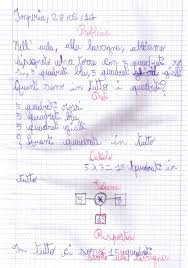 Imperia, 23 nov, 17
Problema
Nell' aula, alla lavagna, abbiamo
disegnato una torre con 5 quadrati ros
si, 5 quadrati blu, 5 quadrati gialli
Quanti sono in tutto i quadrati?
Dati
5 quadrati rossi
5 quadrati blu
5 quadrati gialli
? Quanti quadrati in tutto
Calcolo
5 x 3 = 15 quadrati in
tutto
Schema
5 x 3
Risposta
In tutto ci sono 15 quadrati